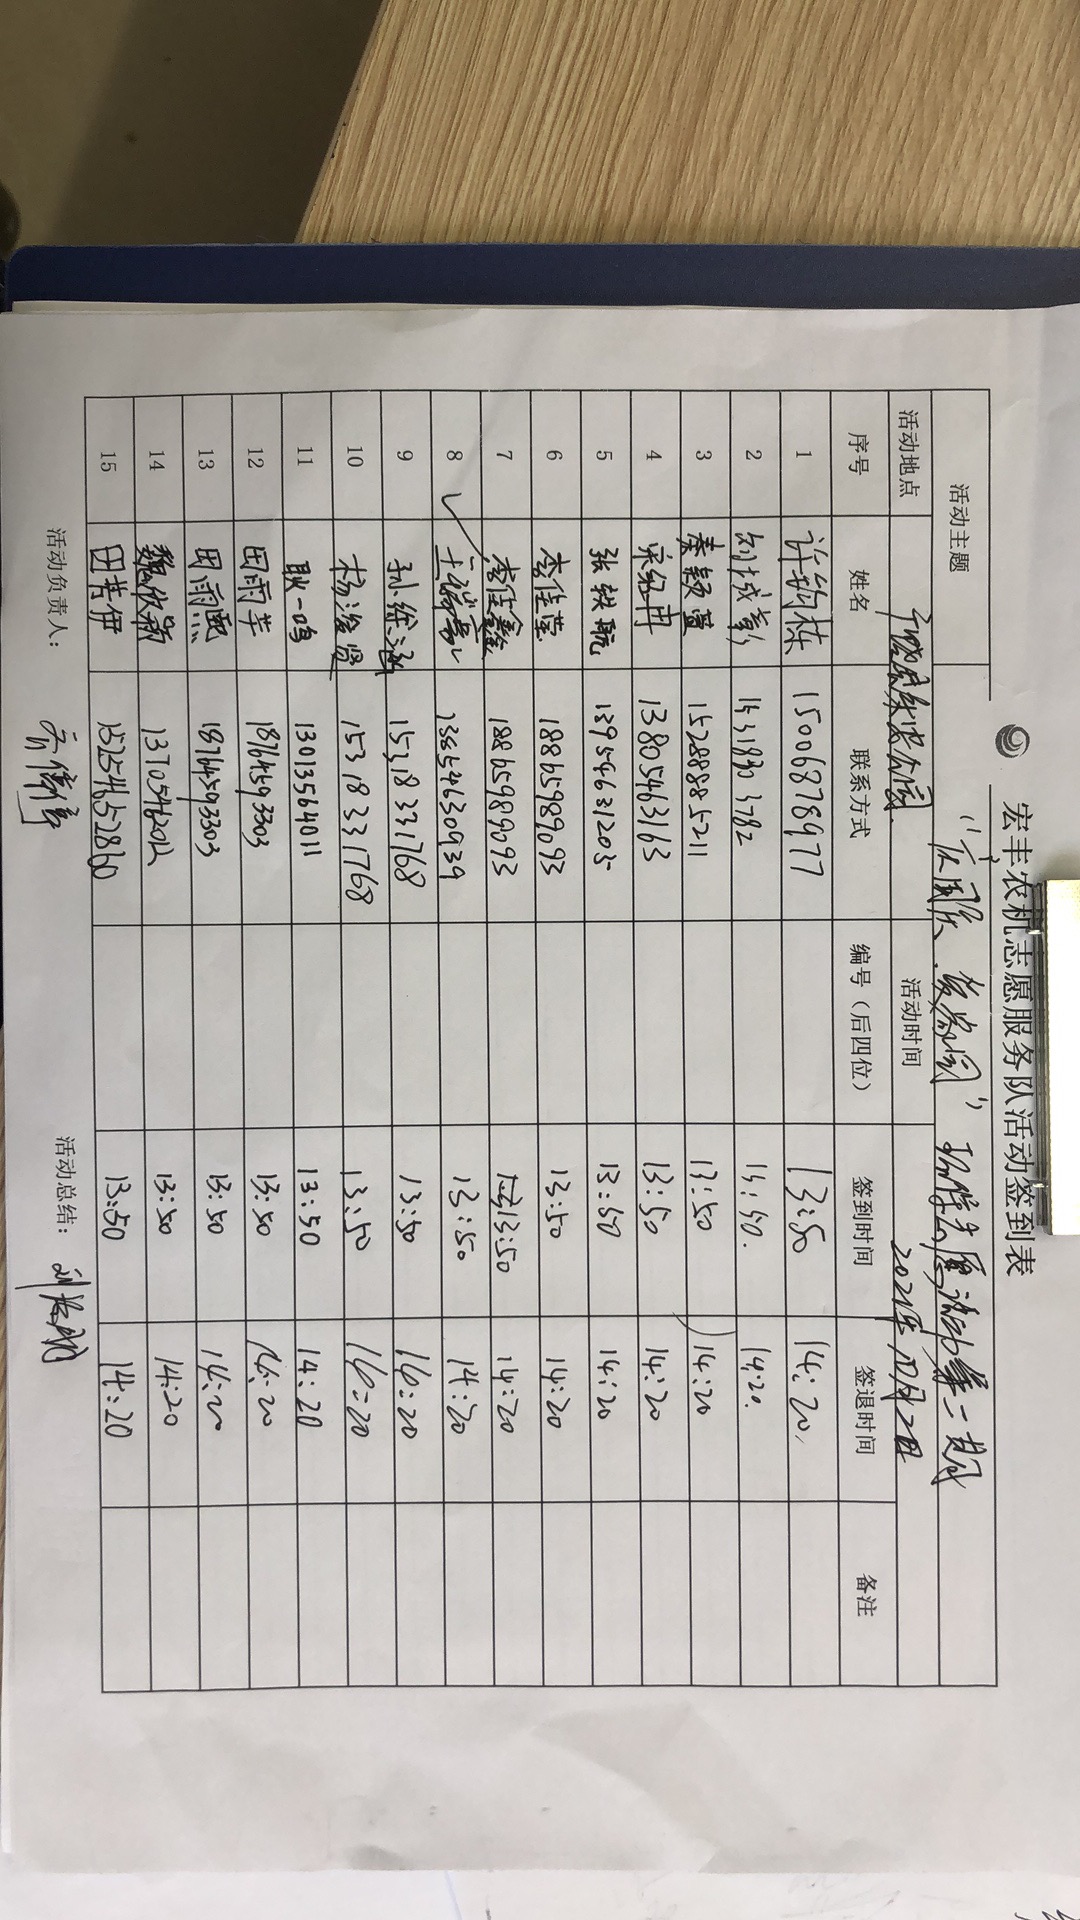 宏丰农机志愿服务队活动签到表
活动主题 "庆国庆 赏菊园" 志愿活动第二期
活动地点 活动时间 2021年10月2日
序号 姓名 联系方式 编号（后四位） 签到时间 签退时间 备注
1 15006878977 13:50 14:20
2 13:50. 14:20.
3 秦颖萱 15288885211 13:50 14:20
4 13805463163 13:50 14:20
5 张轶航 13954631205 13:50 14:20
6 李佳莹 18865989093 13:50 14:20
7 李佳鑫 18865989093 13:50 14:20
8 13854630939 13:50 14:20
9 15318331768 13:50 16:20
10 杨浚贤 15318331768 13:50 16:20
11 耿一鸣 13013564011 13:50 14:20
12 田雨芊 18764593303 13:50 14:20
13 田雨熙 18764593303 13:50 14:20
14 魏欣蕊 13705462012 13:50 14:20
15 15254652860 13:50 14:20
活动负责人： 活动总结：